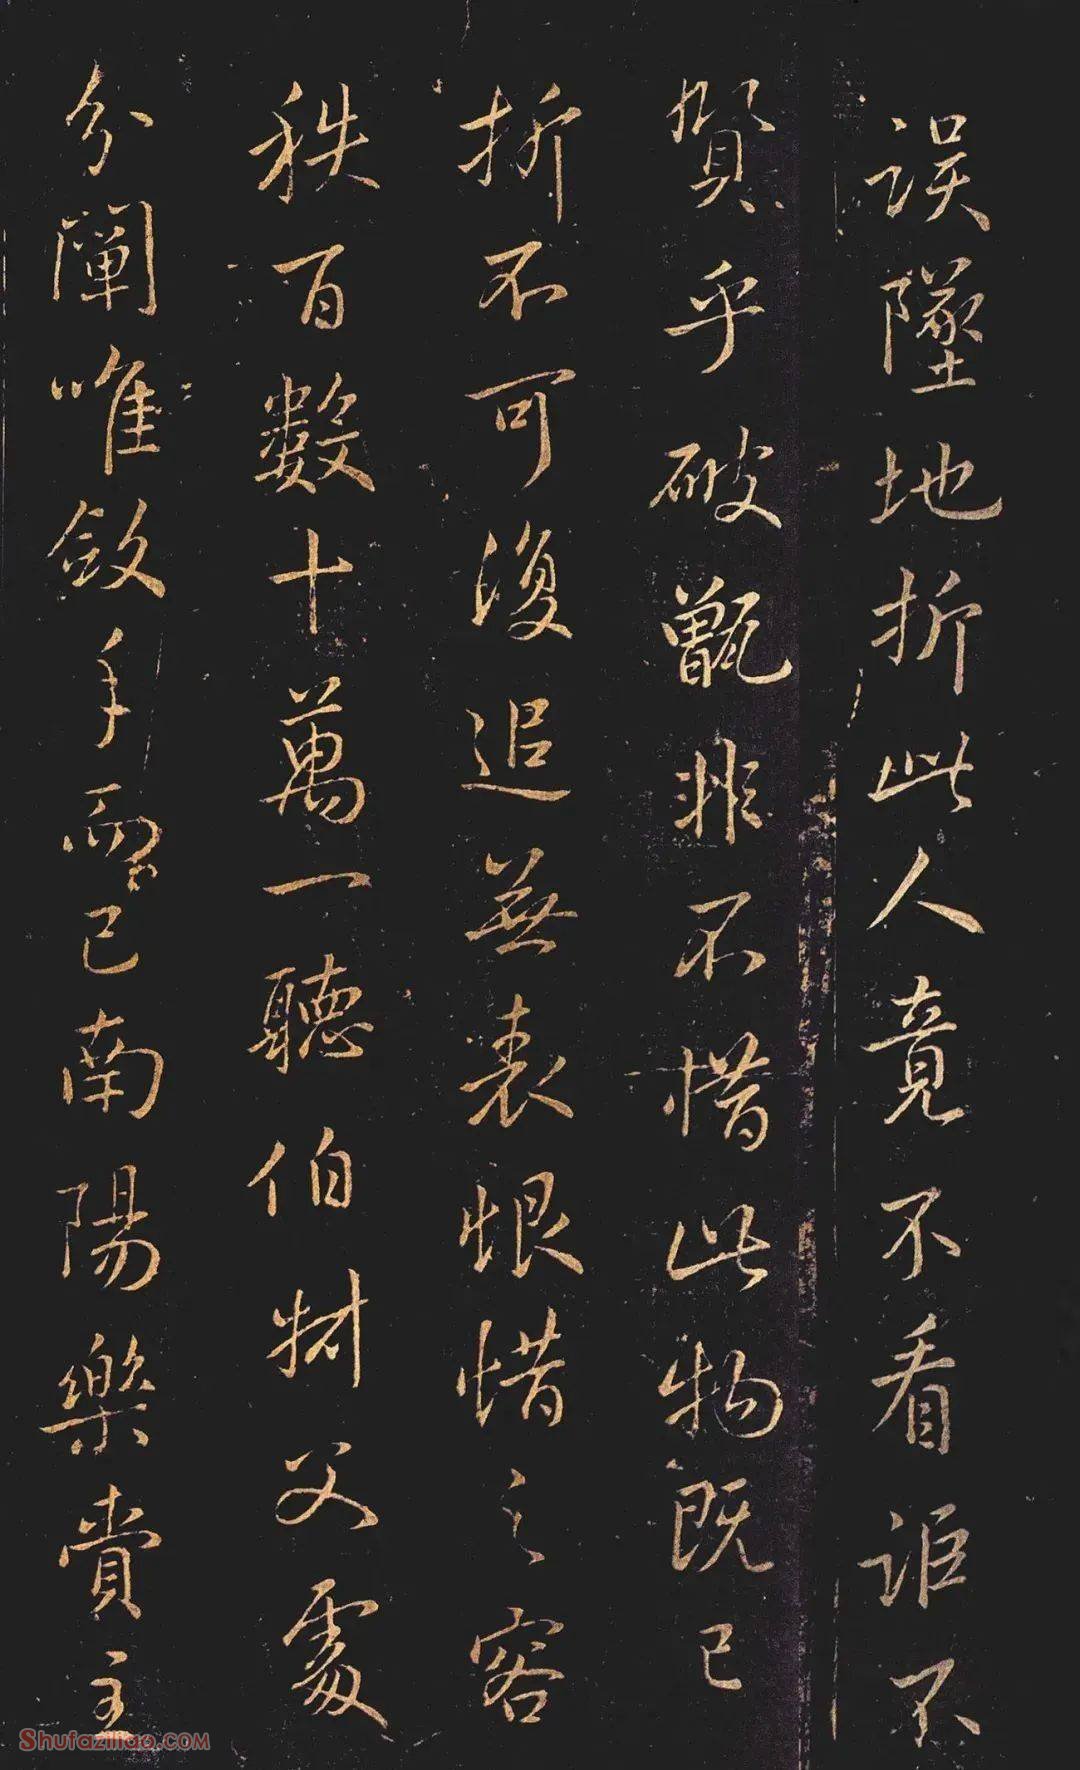 誤墜地折此人竟不看詎不
賢乎破甑非不惜此物既已
折不可復追無表恨惜之容
秩百數十萬一聽伯材父處
分闡唯斂手而已南陽樂賞主
Shufaziliao.com